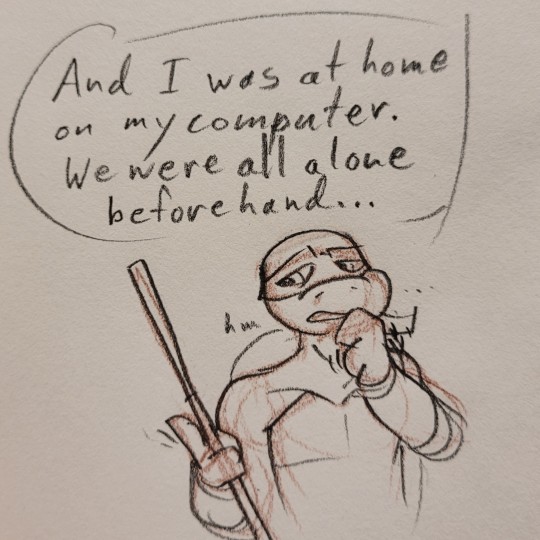 And I was at home
on my computer.
We were all alone
beforehand...
hm
...